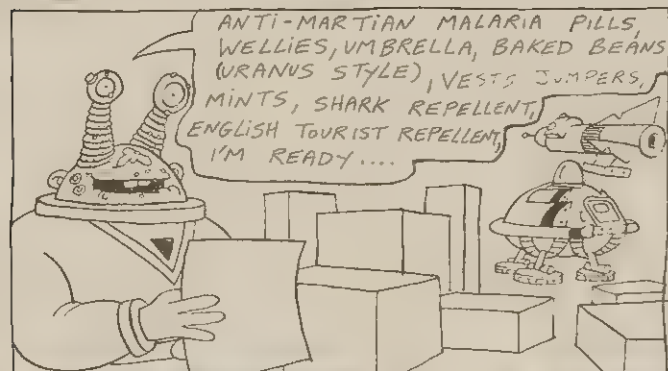 ANTI-MARTIAN MALARIA PILLS,
WELLIES, UMBRELLA, BAKED BEANS
(URANUS STYLE), VESTS JUMPERS,
MINTS, SHARK REPELLENT,
ENGLISH TOURIST REPELLENT,
I'M READY....